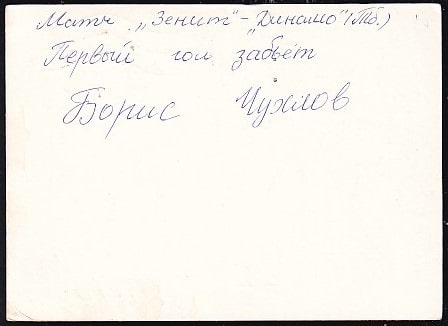 Матч „Зенит“ – „Динамо“ (Тб.)
Первый гол забьёт
Борис Чухлов